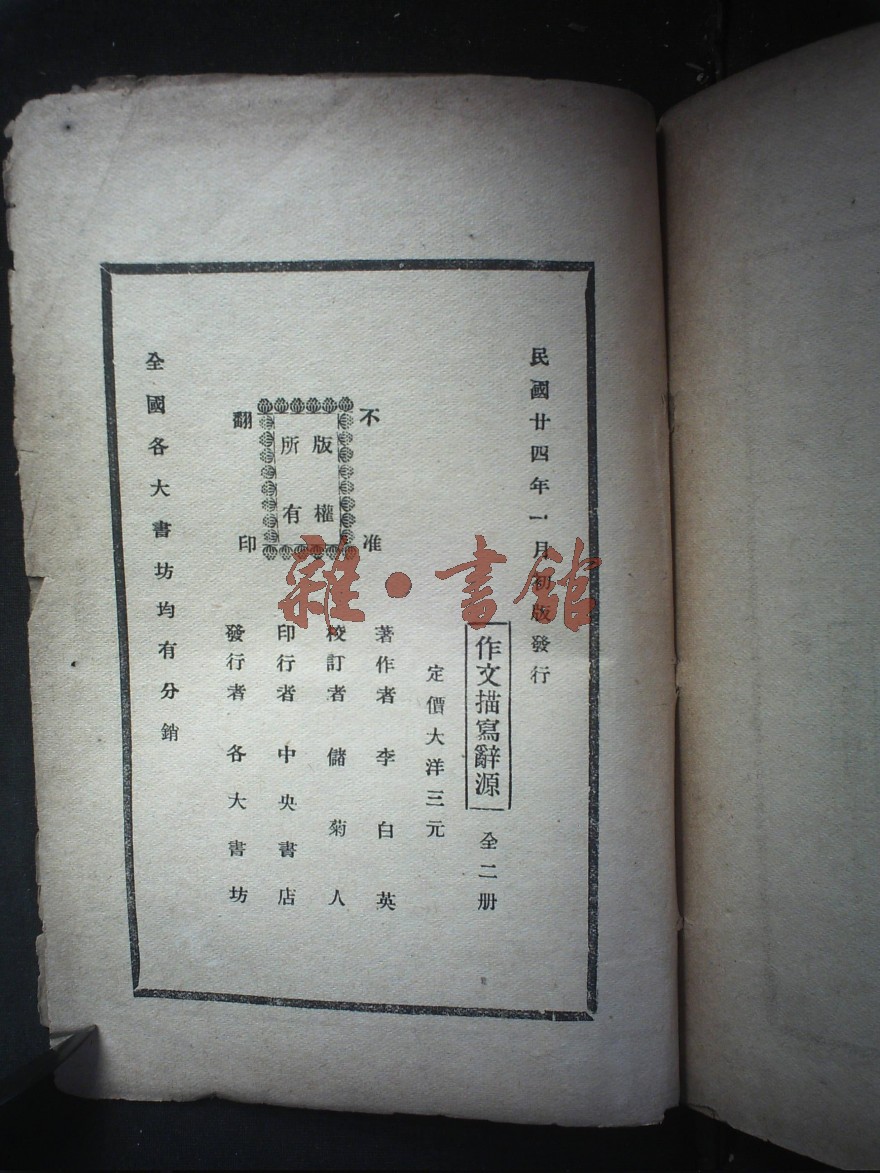 民國廿四年一月初版發行
作文描寫辭源 全二册
定價大洋三元
著作者 李白英
校訂者 儲菊人
印行者 中央書店
發行者 各大書坊
不准
版權
所有
翻印
全國各大書坊均有分銷
雜·書館